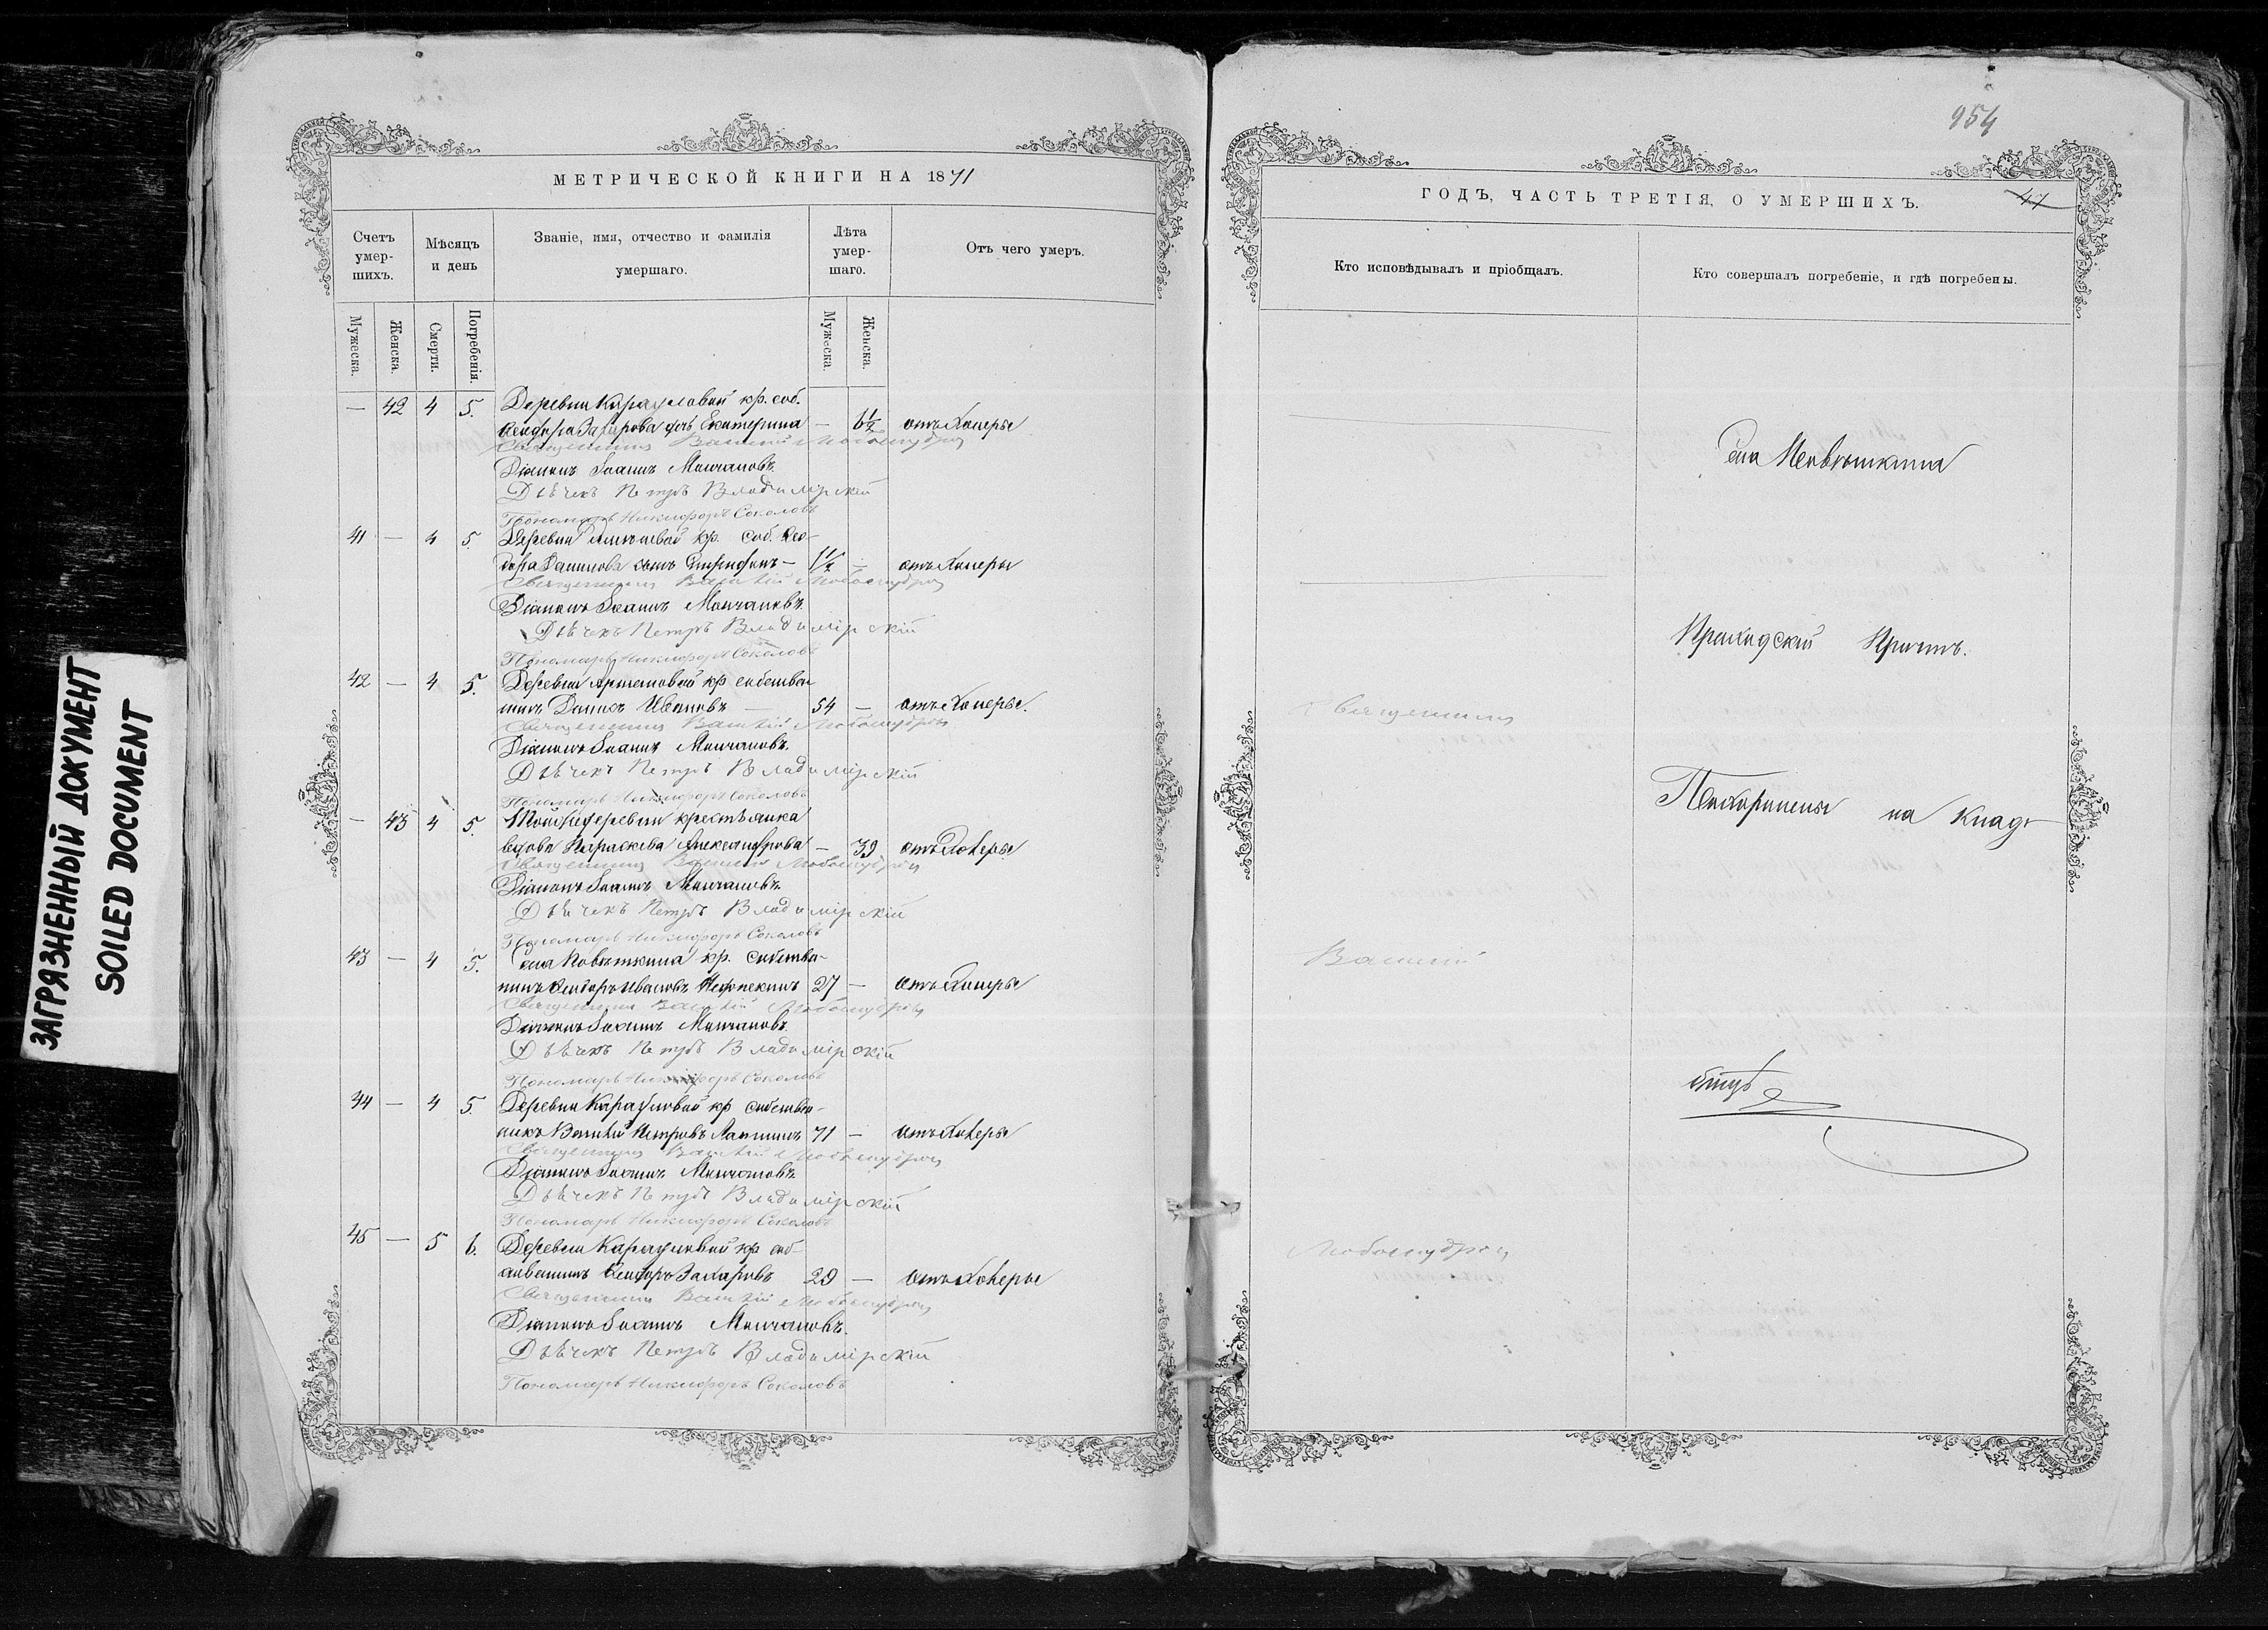 ЗАГРЯЗНЕННЫЙ ДОКУМЕНТ
SOILED DOCUMENT
МЕТРИЧЕСКОЙ КНИГИ НА 1871
Счетъ умер-шихъ.
Мѣсяцъ и день
Званіе, имя, отчество и фамилія умершаго.
Лѣта умер-шаго.
Отъ чего умеръ.
Мужеска.
Женска.
Смерти.
Погребенія.
Мужеска.
Женска.
— 42 4 5. Деревни Карауловой кр. соб.
Ѳеодора Захарова дчь Екатерина — 6½ отъ холеры
Священникъ Василій Любомудровъ
Діаконъ Іоаннъ Молчановъ
Дьячекъ Петръ Владимірскій
Пономарь Никифоръ Соколовъ
41 — 4 5. Деревни кр. соб. Ѳео-
дора Данилова сынъ 1½ — отъ холеры
Священникъ Василій Любомудровъ
Діаконъ Іоаннъ Молчановъ
Дьячекъ Петръ Владимірскій
Пономарь Никифоръ Соколовъ
42 — 4 5. Деревни Артемовой кр собствен
никъ Ивановъ — 54 — отъ холеры.
Священникъ Василій Любомудровъ
Діаконъ Іоаннъ Молчановъ
Дьячекъ Петръ Владимірскій
Пономарь Никифоръ Соколовъ
— 43 4 5. Той же деревни крестьянка
вдова Параскева Александрова — 39 отъ холеры
Священникъ Василій Любомудровъ
Діаконъ Іоаннъ Молчановъ
Дьячекъ Петръ Владимірскій
Пономарь Никифоръ Соколовъ
43 — 4 5. села кр. собстве-
никъ Ѳеодоръ Ивановъ 27 — отъ холеры
Священникъ Василій Любомудровъ
Діаконъ Іоаннъ Молчановъ
Дьячекъ Петръ Владимірскій
Пономарь Никифоръ Соколовъ
44 — 4 5. Деревни Карауловой кр собствен-
никъ Василій Петровъ Лапшинъ 71 — отъ холеры
Священникъ Василій Любомудровъ
Діаконъ Іоаннъ Молчановъ
Дьячекъ Петръ Владимірскій
Пономарь Никифоръ Соколовъ
45 — 5 6. Деревни Карауловой кр соб-
Ѳеодоръ Захаровъ 29 — отъ холеры
Священникъ Василій Любомудровъ
Діаконъ Іоаннъ Молчановъ.
Дьячекъ Петръ Владимірскій
Пономарь Никифоръ Соколовъ
954
ГОДЪ, ЧАСТЬ ТРЕТІЯ, О УМЕРШИХЪ.
47
Кто исповѣдывалъ и пріобщалъ.
Кто совершалъ погребеніе, и гдѣ погребены.
села
Приходскій Причтъ.
Священникъ
Похоронены на клад-
Василій
бищѣ
Любомудровъ